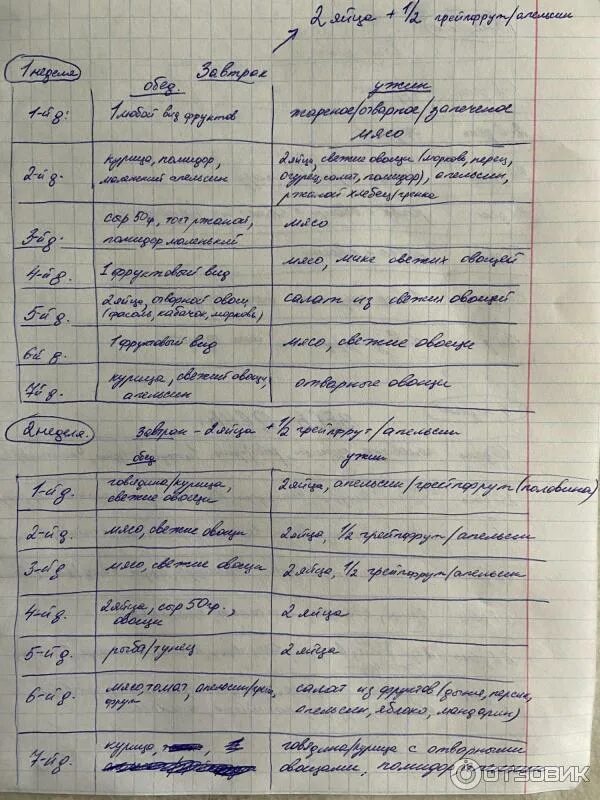 2 яйца + 1/2 грейпфрут/апельсин
1 неделя
Завтрак
обед. ужин
1-й д: 1 любой вид фруктов жареное/отварное/запеченое
мясо
2-й д. курица, помидор, 2 яйца, свежие овощи (морковь, перец,
маленький апельсин огурец, салат, помидор), апельсин,
ржаной хлебец/гренка
3-й д: сыр 50г, тост ржаной, мясо
помидор маленький
4-й д. 1 фруктовый вид мясо, микс свежих овощей
5-й д. 2 яйца, отварной овощ салат из свежих овощей
(фасоль, кабачок, морковь)
6й д. 1 фруктовый вид мясо, свежие овощи
7й д. курица, свежий овощи, отварные овощи
апельсин
2 неделя. Завтрак - 2 яйца + 1/2 грейпфрут/апельсин
обед ужин
1-й д. говядина/курица, 2 яйца, апельсин/грейпфрут (половина)
свежие овощи
2-й д. мясо, свежие овощи 2 яйца, 1/2 грейпфрут/апельсин
3-й д. мясо, свежие овощи 2 яйца, 1/2 грейпфрут/апельсин
4-й д. 2 яйца, сыр 50гр., 2 яйца
овощи
5-й д. рыба/тунец 2 яйца
6-й д. мясо, томат, апельсин/грейп салат из фруктов (дыня, персик,
фрут апельсин, яблоко, мандарин)
7-й д. курица, говядина/курица с отварными
овощами, помидор
ОТЗОВИК